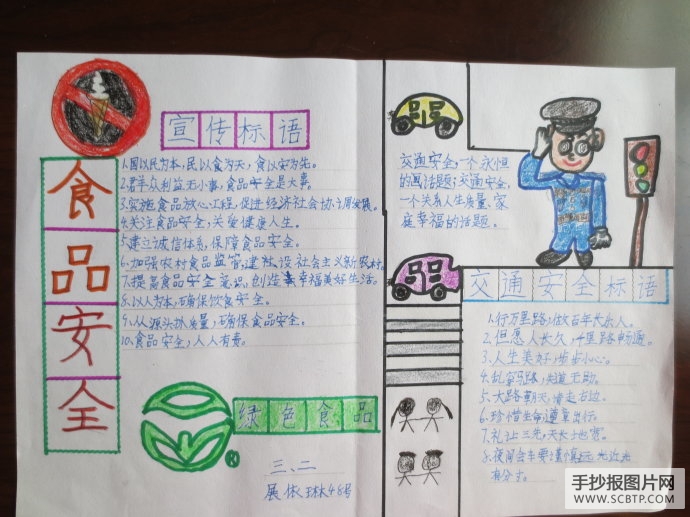 宣传标语
食品安全
1.国以民为本,民以食为天,食以安为先。
2.君手众利益无小事,食品安全是大事。
3.实施食品放心工程,促进经济社会协调发展。
4.关注食品安全,关爱健康人生。
5.建立诚信体系,保障食品安全。
6.加强农村食品监管,建设社会主义新农村。
7.提高食品安全意识,创造幸福美好生活。
8.以人为本,确保饮食安全。
9.从源头抓质量,确保食品安全。
10.食品安全,人人有责。
绿色食品
R
三、二
展依琳48号
交通安全,一个永恒
的话题;交通安全,
一个关系人生质量、家
庭幸福的话题。
交通安全标语
1.行万里路,做百年长乐人。
2.但愿人长久,千里路畅通。
3.人生美好,步步小心。
4.乱穿马路,失道无助。
5.大路朝天,请走右边。
6.珍惜生命,遵章出行。
7.礼让三先,天长地宽。
8.夜间会车要谨慎,远光近光
有分寸。
手抄报图片网
WWW.SCBTP.COM